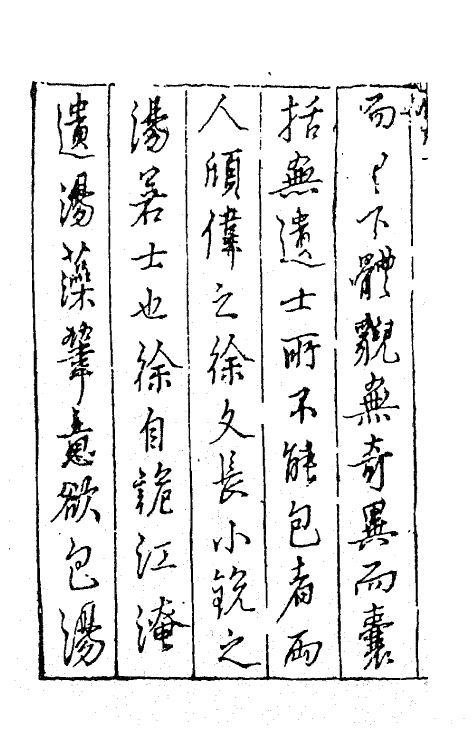 而下體貌無奇異而囊
括無遺士所不能包者兩
人頎偉之徐文長小銳之
湯若士也徐自詭江淹
遺湯藻筆意欲包湯